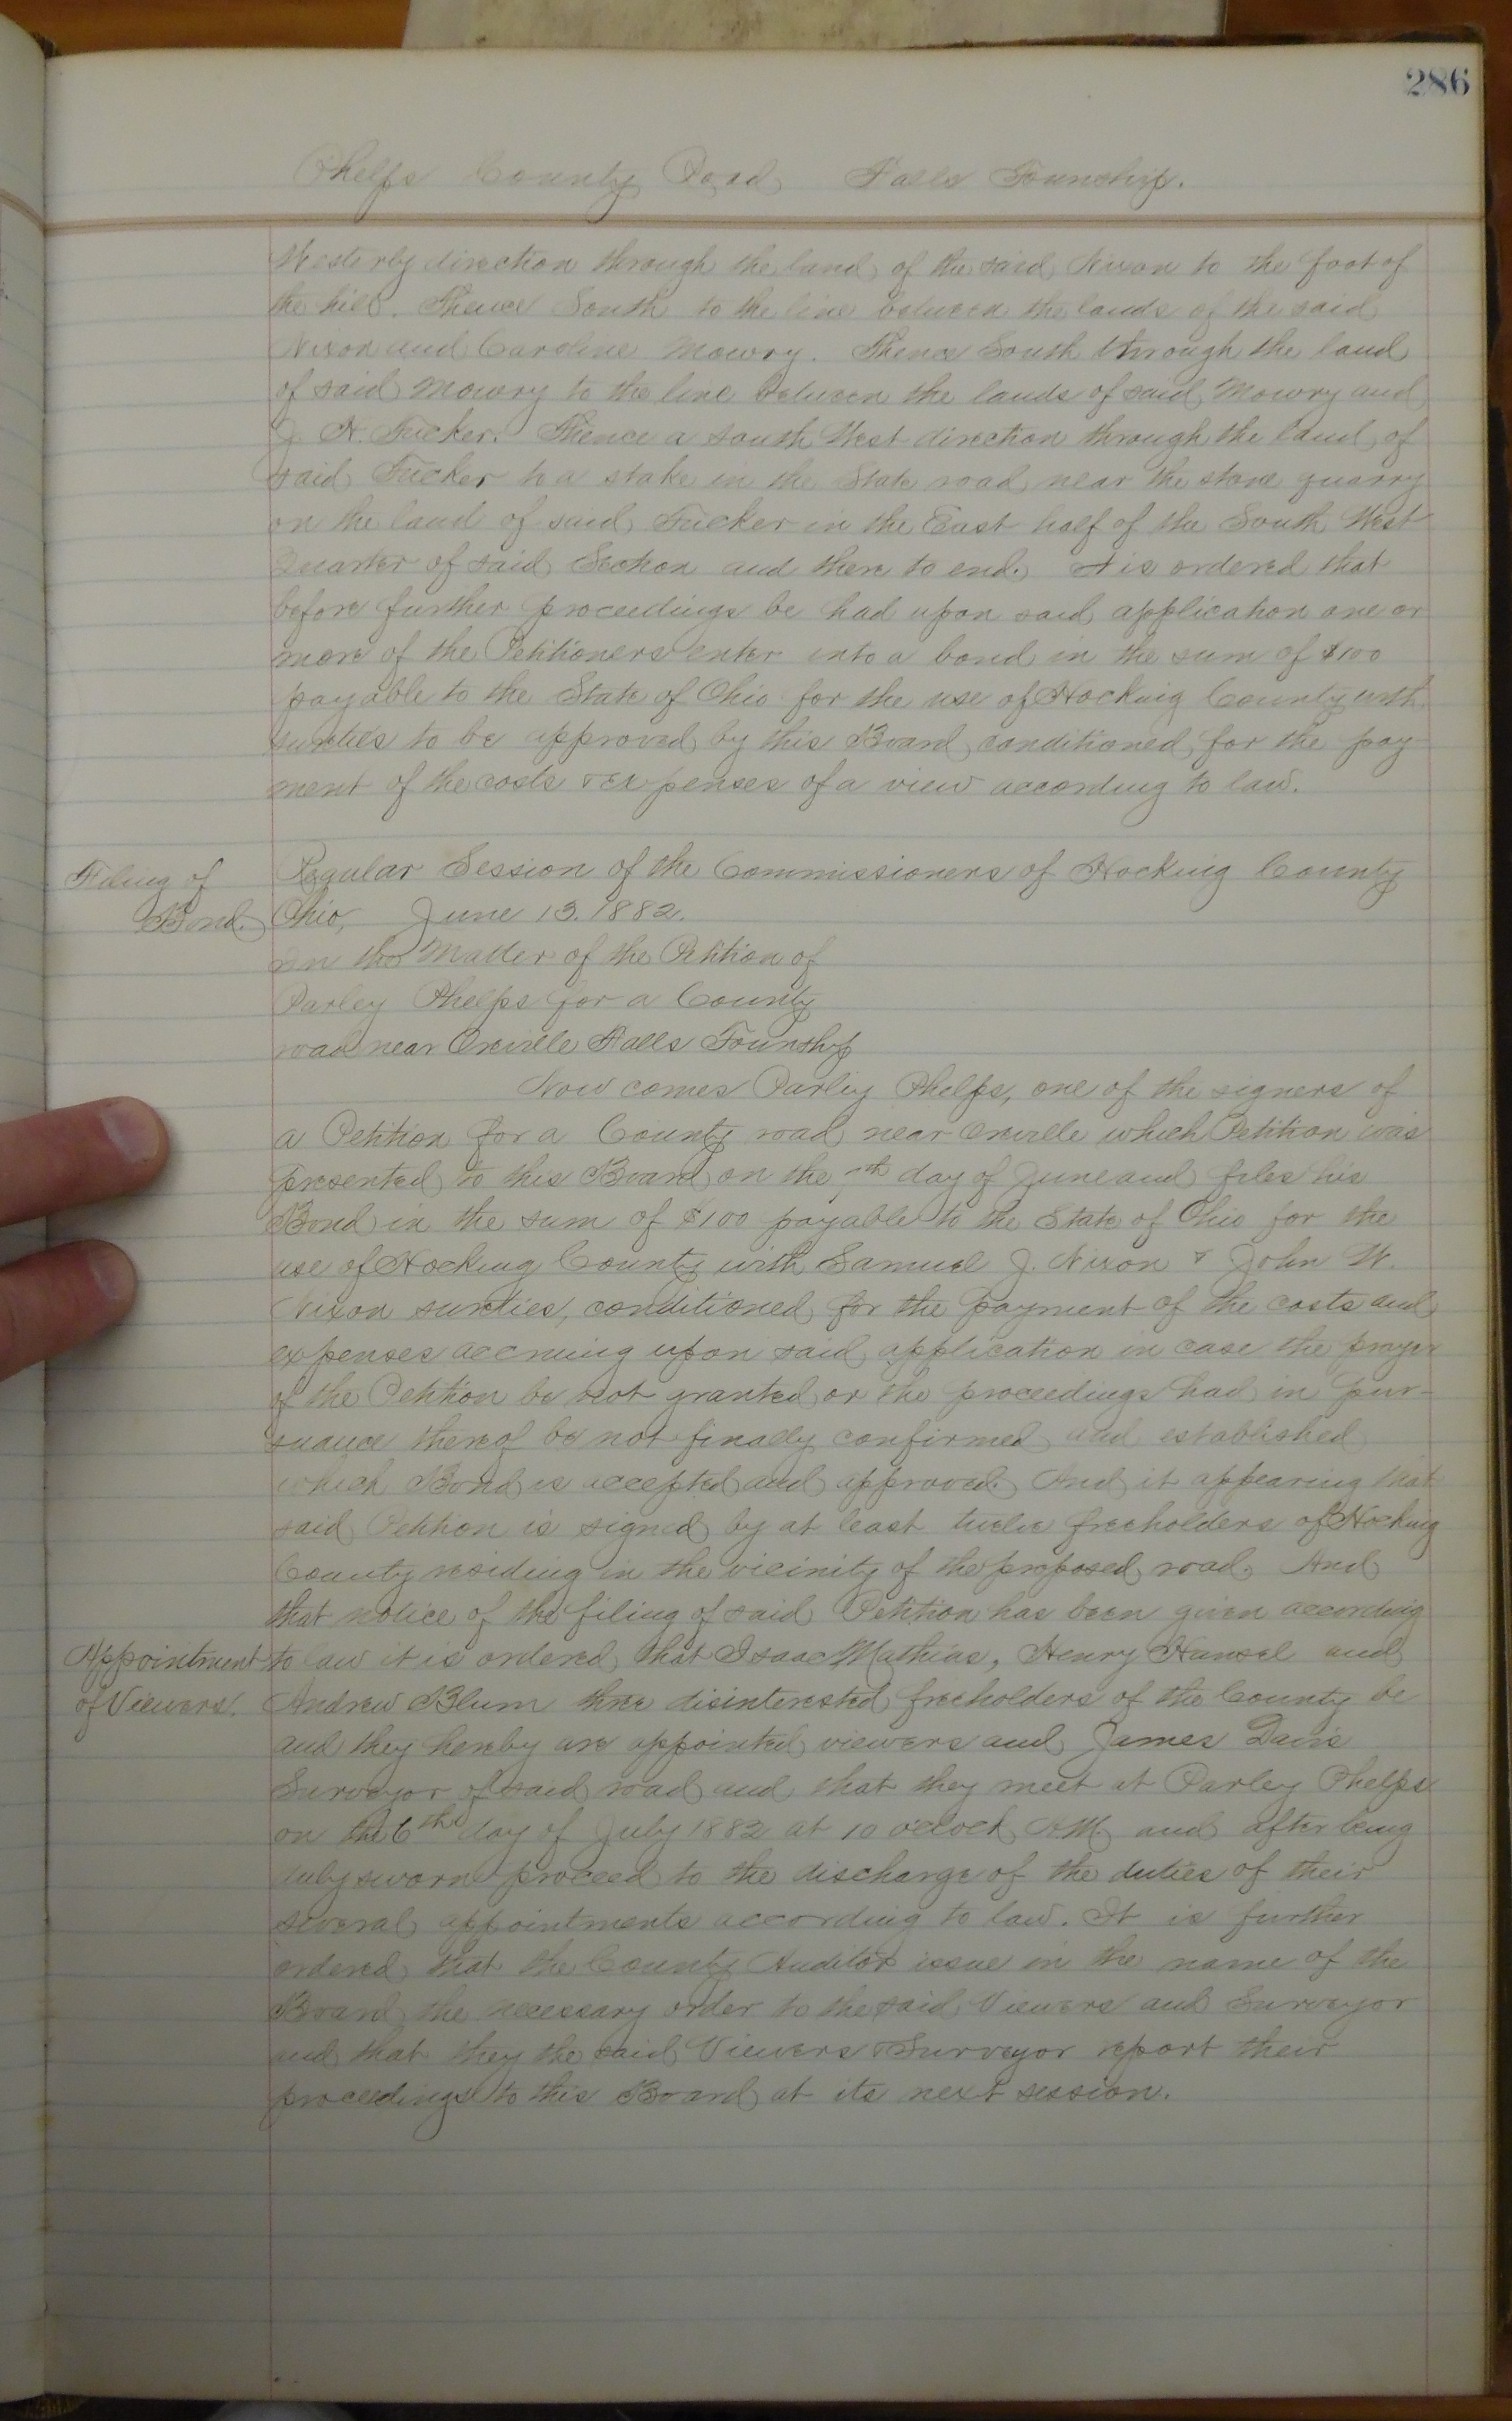 286
Phelps County Road, Falls Township.
Westerly direction through the land of the said Nixon to the foot of
the hill. Thence South to the line between the lands of the said
Nixon and Caroline Mowry. Thence South through the land
of said Mowry to the line between the lands of said Mowry and
J. N. Tucker. Thence a south West direction through the land of
said Tucker to a stake in the State road near the stone quarry
on the land of said Tucker in the East half of the South West
Quarter of said Section and there to end. It is ordered that
before further proceedings be had upon said application one or
more of the Petitioners enter into a bond in the sum of $100
payable to the State of Ohio for the use of Hocking County with
sureties to be approved by this Board conditioned for the pay
ment of the costs & expenses of a view according to law.
Filing of
Bond.
Regular Session of the Commissioners of Hocking County
Ohio, June 13. 1882.
In the Matter of the Petition of
Parley Phelps for a County
road near Oreville Falls Township
Now comes Parley Phelps, one of the signers of
a Petition for a County road near Oreville which Petition was
presented to this Board on the day of June and files his
Bond in the sum of $100 payable to the State of Ohio for the
use of Hocking County with Samuel J. Nixon & John W.
Nixon sureties, conditioned for the payment of the costs and
expenses accruing upon said application in case the prayer
of the Petition be not granted or the proceedings had in pur-
suance thereof be not finally confirmed and established
which Bond is accepted and approved. And it appearing that
said Petition is signed by at least twelve freeholders of Hocking
County residing in the vicinity of the proposed road, And
that notice of the filing of said Petition has been given according
Appointment
of Viewers.
to law it is ordered that Isaac Mathias, Henry Hansel and
Andrew Blum three disinterested freeholders of the County be
and they hereby are appointed viewers and James Davis
Surveyor of said road and that they meet at Parley Phelps
on the 6th day of July 1882 at 10 oclock A.M. and after being
duly sworn proceed to the discharge of the duties of their
several appointments according to law. It is further
ordered that the County Auditor issue in the name of the
Board the necessary order to the said Viewers and Surveyor
and that they the said Viewers & Surveyor report their
proceedings to this Board at its next session.